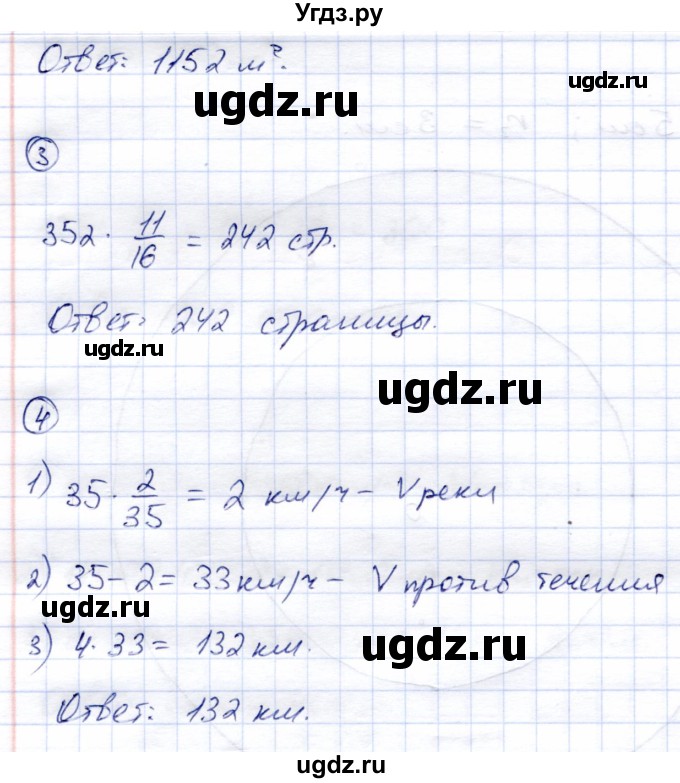 Угдз.ру
Ответ: 1152 м².
ugdz.ru
ugdz.ru
3
ugdz.ru
352 · 11/16 = 242 стр.
Ответ: 242 страницы.
ugdz.ru
ugdz.ru
4
ugdz.ru
1) 35 · 2/35 = 2 км/ч - V реки
2) 35 - 2 = 33 км/ч - V против течения
ugdz.ru
3) 4 · 33 = 132 км.
ugdz.ru
Ответ: 132 км.
ugdz.ru